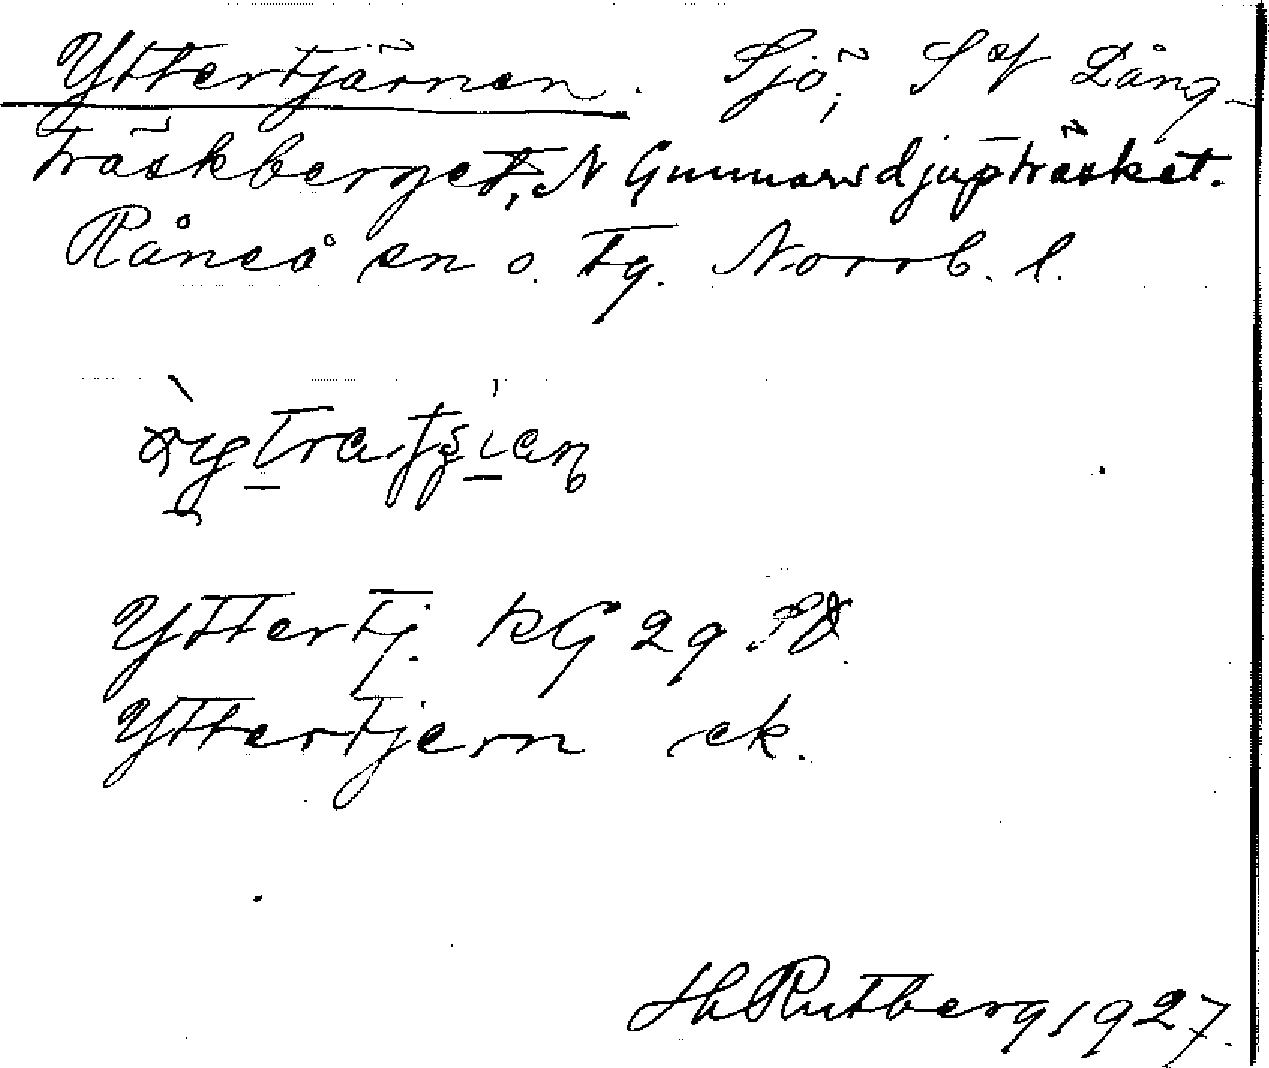 Yttertjärnen. Sjö, S Lång-
träskberget, N Gunnarsdjupträsket.
Råneå sn o. tg. Norrb. l.
Yttertj. RG 29 SV.
Yttertjern ek.
Hh Rutberg 1927.